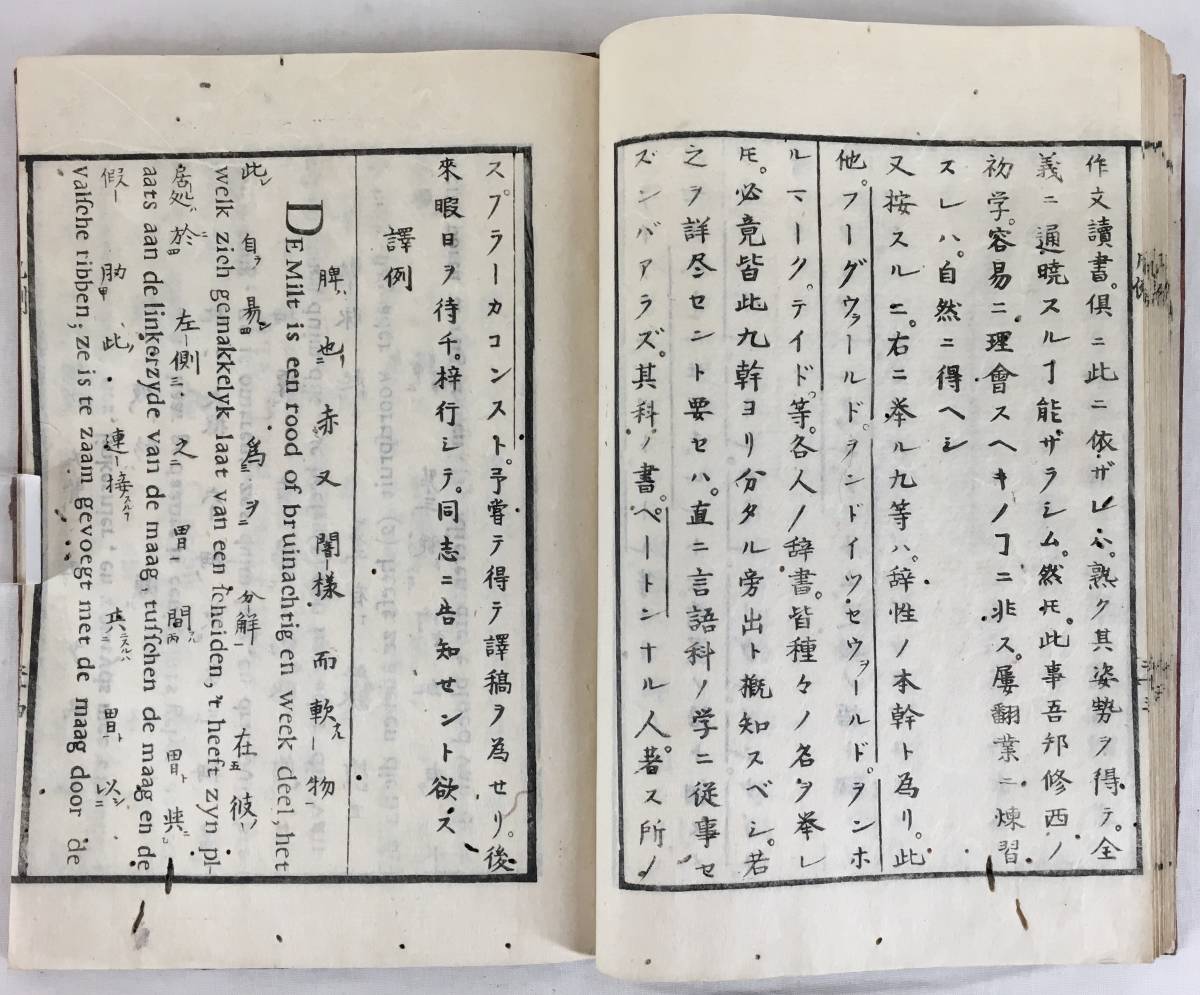 作文讀書。俱ニ此ニ依ザレハ。熟ク其姿勢ヲ得テ。全
義ニ通曉スルヿ能ザラシム。然𪜈。此事吾邦修西ノ
初学。容易ニ理會スヘキノヿニ非ス。屢翻業ニ煉習
スレハ。自然ニ得ヘシ
又按スルニ。右ニ举ル九等ハ。辞性ノ本幹ト為リ。此
他。フーグヴァールド。ヲンドイツ・セウヲールド。ヲンホ
ルマーク。テイド。等。各人ノ辞書。皆種々ノ名ヲ举レ
𪜈。必竟皆此九幹ヨリ分タル旁出ト概知スベシ。若
之ヲ詳尽セント要セハ。直ニ言語科ノ学ニ從事セ
ズンバアラズ。其科ノ書。ペートンナル人。著ス所ノ
スプラーカコンスト。予嘗テ得テ譯稿ヲ為セリ。後
來暇日ヲ待チ。梓行シテ。同志ニ告知セント欲ス
譯例
脾ハ也ニ赤又闇ー樣而軟ー物
DE Milt is een rood of bruinachtig en week deel, het
此自ラ易為ヲ分ー解在彼
welk zich gemakkelyk laat van een ſcheiden, 't heeft zyn pl-
居処於左ー側ニ之胃間胃ト與
aats aan de linkerzyde van de maag, tuſſchen de maag en de
假ー肋此連ー接スルヿ共胃ト以
valſche ribben; ze is te zaam gevoegt met de maag door de